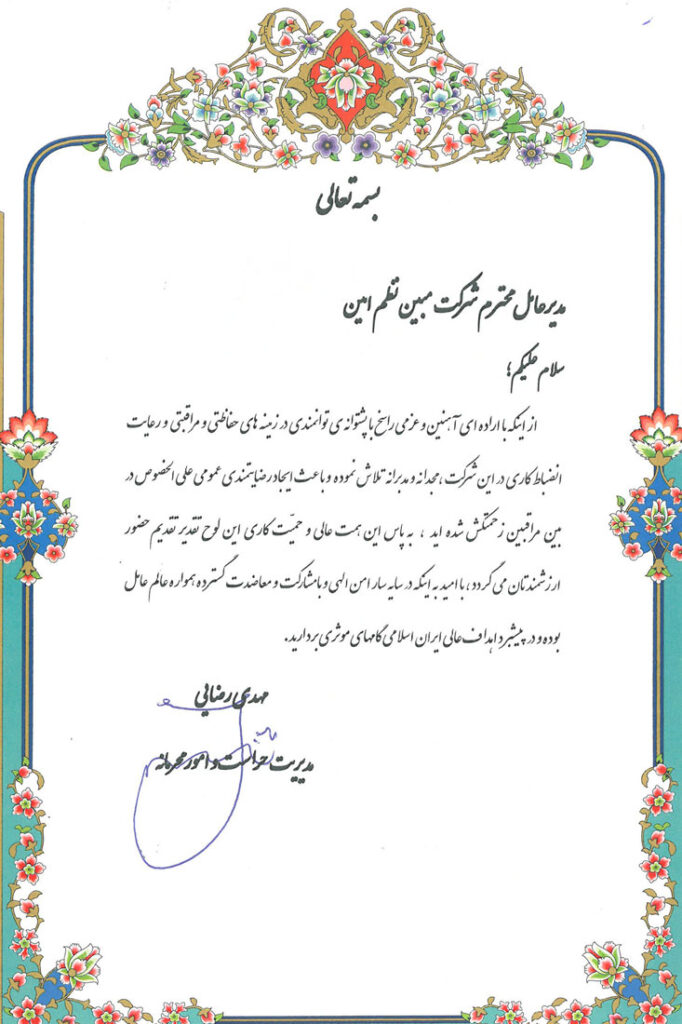 بسمه تعالی
مدیرعامل محترم شرکت مبین نظم امین
سلام علیکم؛
از اینکه با اراده ای آهنین و عزمی راسخ با پشتوانه ی توانمندی در زمینه های حفاظتی و مراقبتی و رعایت
انضباط کاری در این شرکت، مجدانه و مدبرانه تلاش نموده و باعث ایجاد رضایتمندی عمومی علی الخصوص در
بین مراقبین زحمتکش شده اید ، به پاس این همت عالی و حمیّت کاری این لوح تقدیر تقدیم حضور
ارزشمندتان می گردد، با امید به اینکه در سایه سار امن الهی و با مشارکت و معاضدت گسترده همواره عالم عامل
بوده و در پیشبرد اهداف عالی ایران اسلامی گامهای موثری بردارید.
مهدی رضایی
مدیریت حراست و امور محرمانه